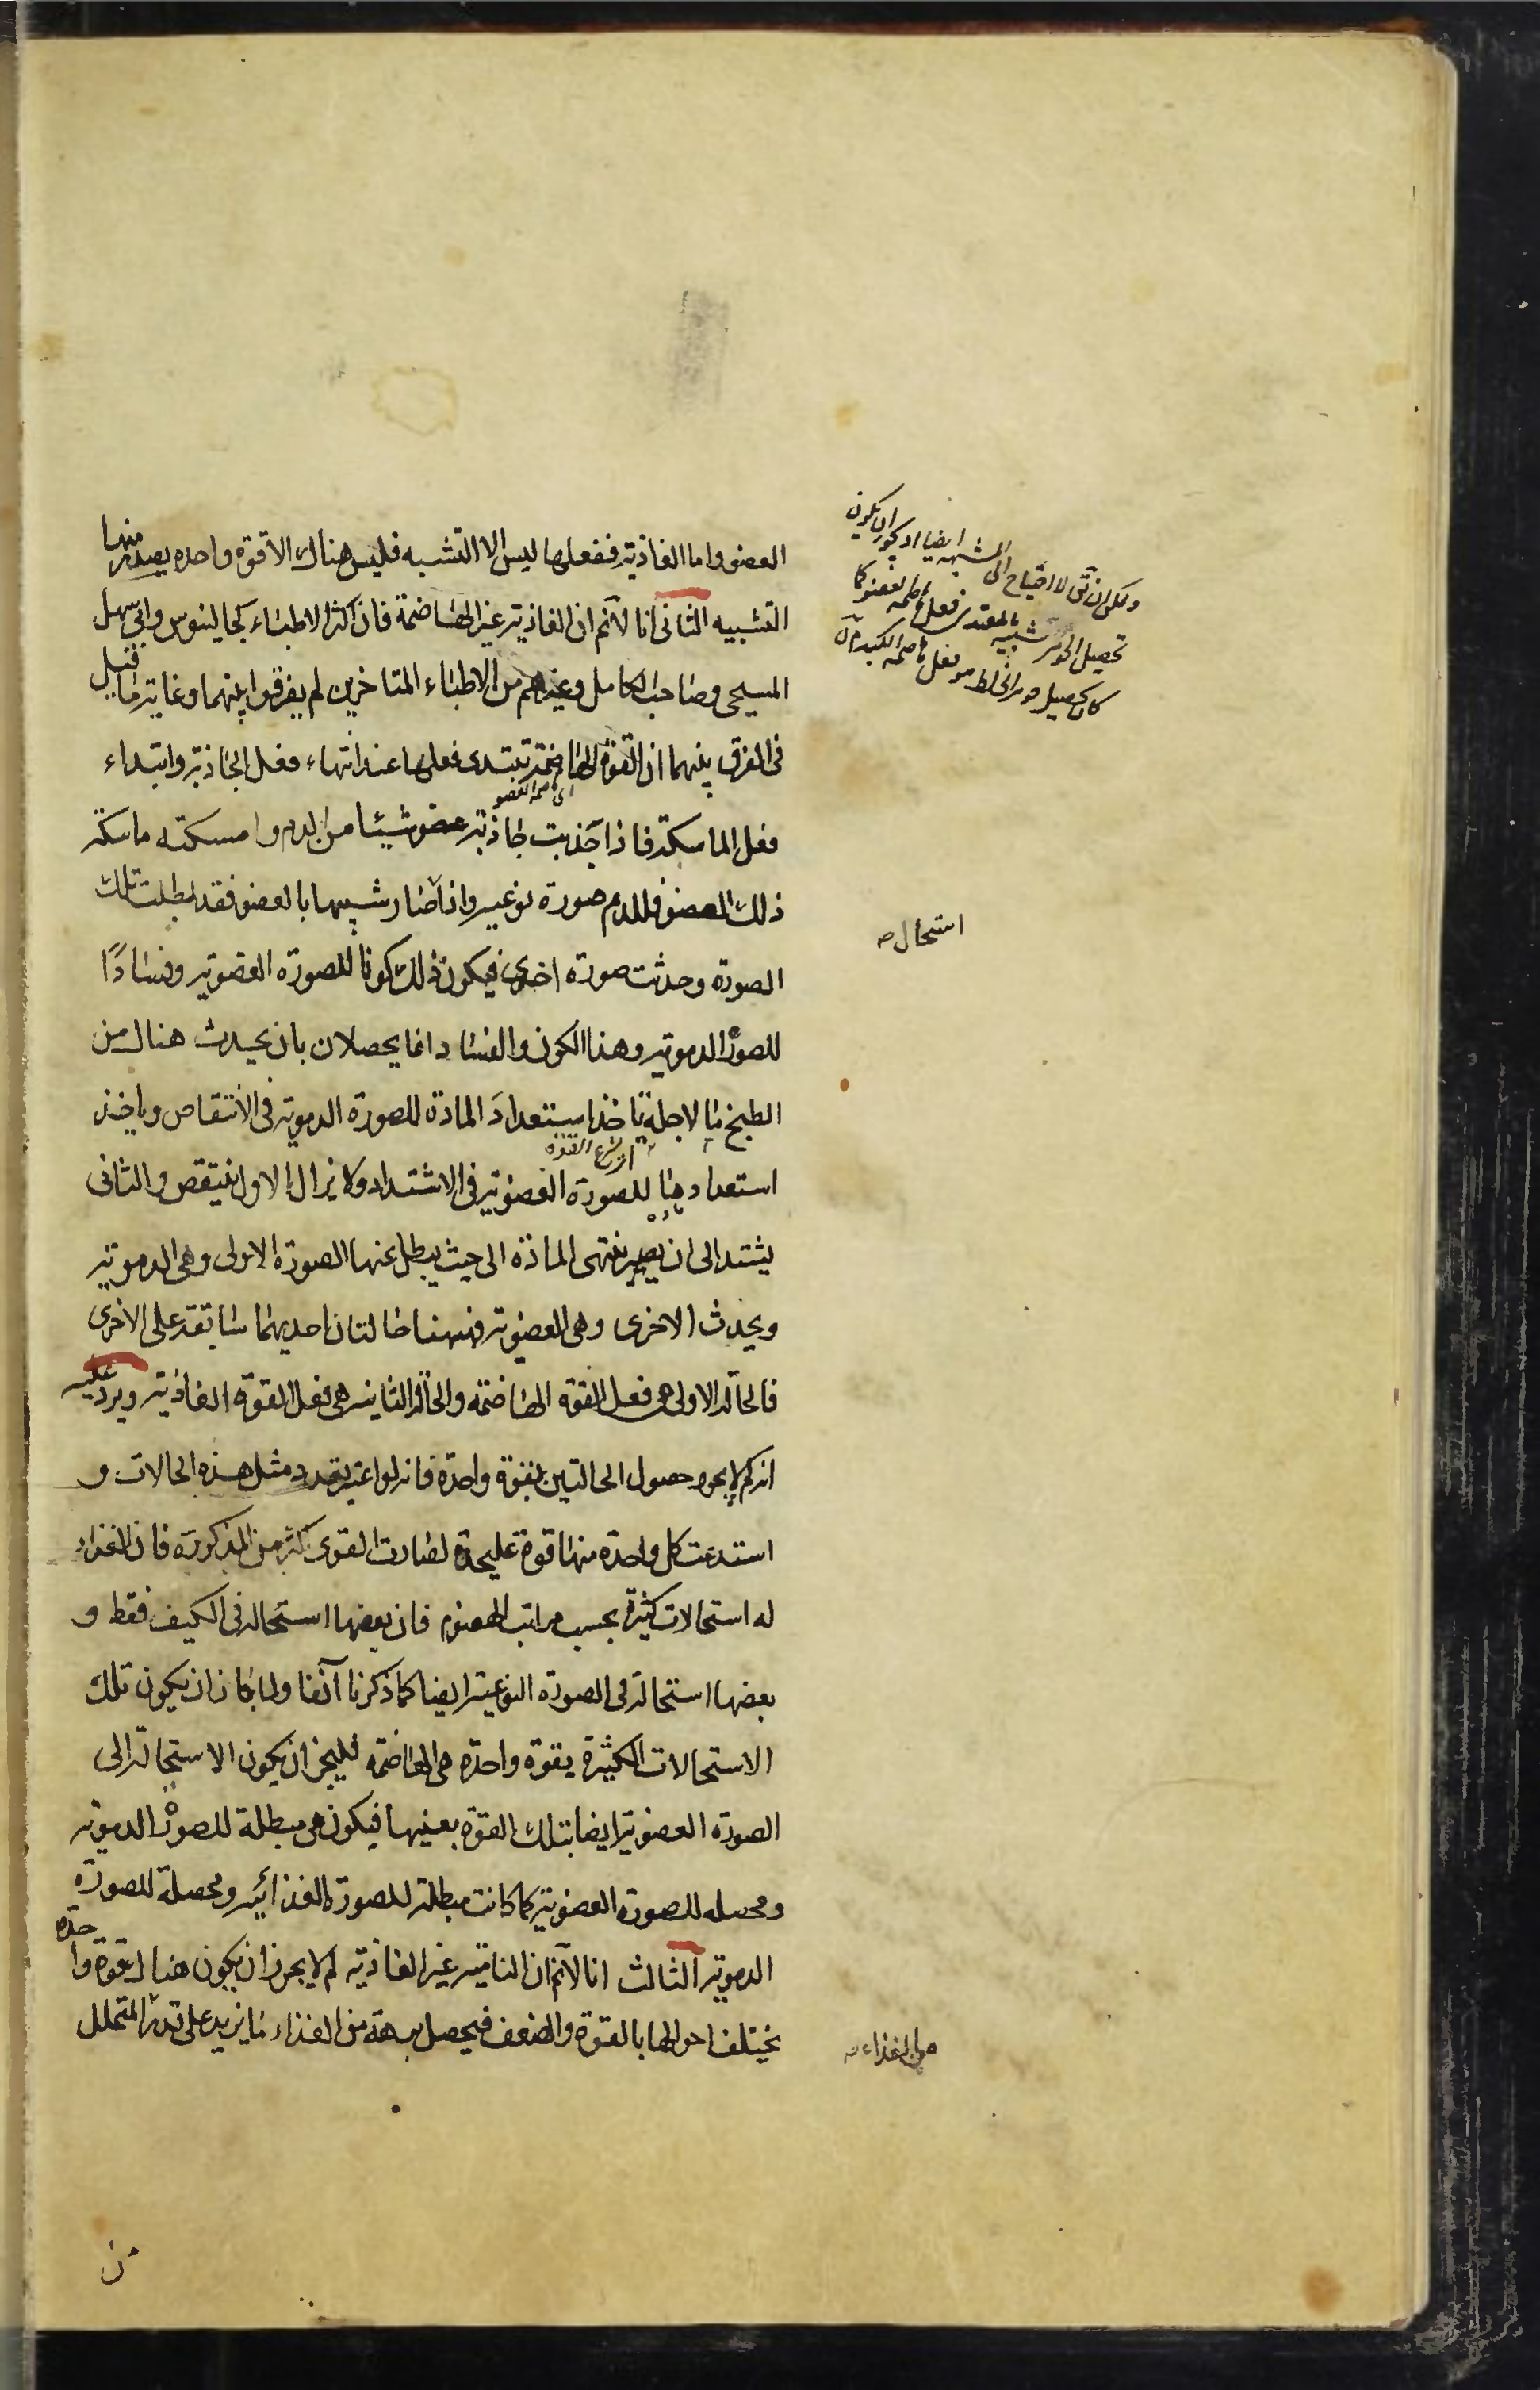 العضو واما الغاذية ففعلها ليس الا التشبيه فليس هناك الا قوة واحده يصدر منها
التشبيه الثانى انا لانم ان الغاذية غير الهاضمة فان اكثر الاطباء كجالينوس وابى سهل
المسيحى وصاحب الكامل وغيرهم من الاطباء المتاخرين لم يفرقوا بينهما وغاية ما قيل
فى الفرق بينهما ان القوة الهاضمة تبتدى فعلها عند انتهاء فعل الجاذبة وابتداء
اى هاضمة العضو
فعل الماسكة فاذا جذبت جاذبة عضو شيئا من الدم وامسكته ماسكة
ذلك العضو فللدم صورة نوعية واذا صار شبيها بالعضو فقد بطلت تلك
الصورة وحدثت صورة اخرى فيكون ذلك كونا للصورة العضوية وفسادًا
للصورة الدموية وهذا الكون والفساد انما يحصلان بان يحدث هناك من
الطبخ ما لاجله تاخذ استعداد المادة للصورة الدموية فى الانتقاص وياخذ
استعدادها للصورة العضوية فى الاشتداد ولا يزال الاول ينتقص والثانى
يشتد الى ان ينتهى المادة الى حيث يبطل عنها الصورة الاولى وهى الدموية
ويحدث الاخرى وهى العضوية فههنا حالتان احديهما سابقة على الاخرى
فالحالة الاولى هى فعل القوة الهاضمة والحالة الثانية هى فعل القوة الغاذية ويرد عليه
انه لم لا يجوز حصول الحالتين بقوة واحدة فانه لو اعتبر تعدد مثل هذه الحالات و
استدعت كل واحدة منها قوة عليحدة لصارت القوى اكثر من المذكورة فان الغذاء
له استحالات كثيرة بحسب مراتب الهضوم فان بعضها استحالة فى الكيف فقط و
بعضها استحالة فى الصورة النوعية ايضا كما ذكرنا آنفا ولما جاز ان يكون تلك
الاستحالات الكثيرة بقوة واحدة هى الهاضمة فليجز ان يكون الاستحالة الى
الصورة العضوية ايضا بتلك القوة بعينها فيكون هى مبطلة للصورة الدموية
ومحصله للصورة العضوية كما كانت مبطلة للصورة الغذائية ومحصلة للصورة
الدموية الثالث انا لانم ان النامية غير الغاذية لم لا يجوز ان يكون هناك قوة واحدة
يختلف احوالها بالقوة والضعف فيحصل من الغذاء ما يزيد على قدر المتحلل
استحال
من الغذاء